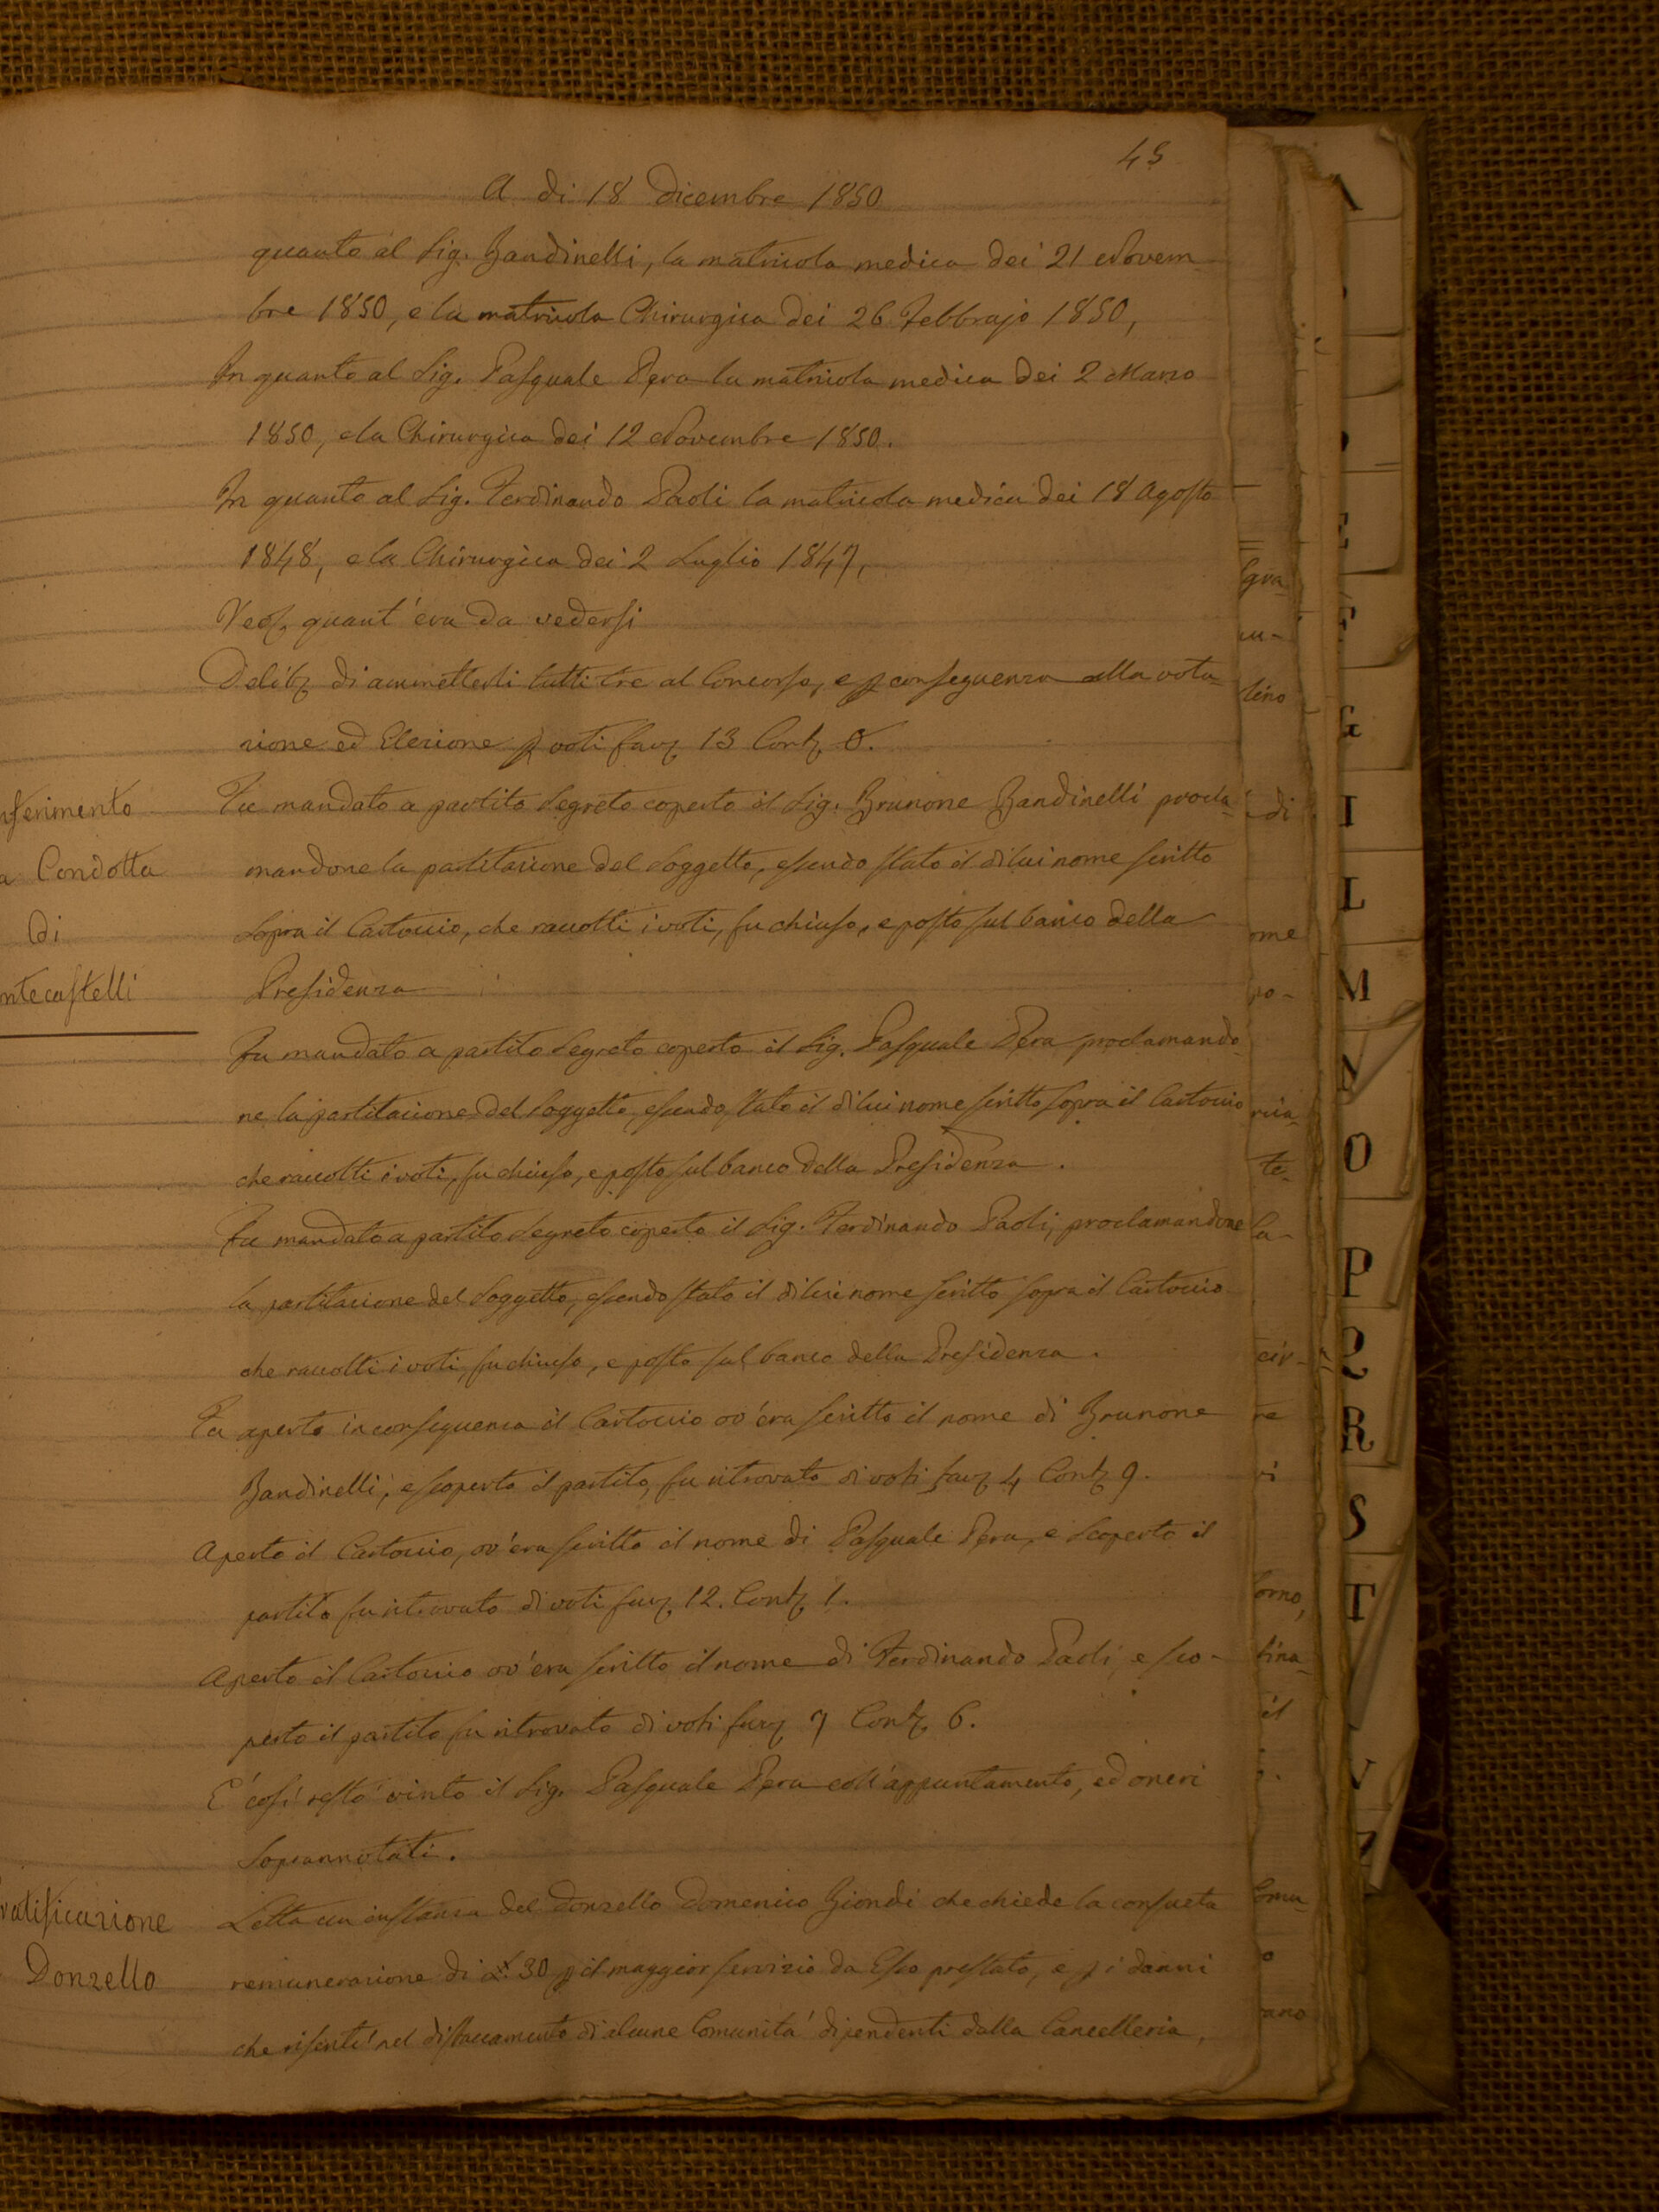 45
A di 18 Dicembre 1850
quanto al Sig. Bandinelli, la matricola medica dei 21 Novem-
bre 1850, e la matricola Chirurgica dei 26 Febbrajo 1850,
In quanto al Sig. Pasquale Pera la matricola medica dei 2 Marzo
1850, e la Chirurgica dei 12 Novembre 1850.
In quanto al Sig. Ferdinando Paoli la matricola medica dei 18 Agosto
1848, e la Chirurgica dei 2 Luglio 1847,
quant'era da vedersi
di ammetterli tutti tre al Concorso, e p conseguenza alla vota-
zione ed Elezione p voti fav 13 Cont 0.
nferimento
a Condotta
di
ntecastelli
Fu mandato a partito segreto coperto il Sig. Brunone Bandinelli procla-
mandone la partitazione del Soggetto, essendo stato il di lui nome scritto
sopra il Cartoccio, che raccolti i voti, fu chiuso, e posto sul banco della
Presidenza
Fu mandato a partito segreto coperto il Sig. Pasquale Pera proclamando-
ne la partitazione del Soggetto, essendo stato il di lui nome scritto sopra il Cartoccio
che raccolti i voti, fu chiuso, e posto sul banco della Presidenza.
Fu mandato a partito segreto coperto il Sig. Ferdinando Paoli, proclamandone
la partitazione del Soggetto, essendo stato il di lui nome scritto sopra il Cartoccio
che raccolti i voti, fu chiuso, e posto sul banco della Presidenza.
Fu aperto in conseguenza il Cartoccio ov'era scritto il nome di Brunone
Bandinelli, e scoperto il partito, fu ritrovato di voti fav 4 Cont 9.
Aperto il Cartoccio, ov'era scritto il nome di Pasquale Pera, e scoperto il
partito fu ritrovato di voti fav 12. Cont 1.
Aperto il Cartoccio ov'era scritto il nome di Ferdinando Paoli, e sco-
perto il partito fu ritrovato di voti fav 7 Cont 6.
E' così restò vinto il Sig. Pasquale Pera coll'appuntamento, ed oneri
soprannotati.
ratificazione
Donzello
Letta un instanza del Donzello Domenico Biondi che chiede la consueta
remunerazione di 30 p il maggior servizio da Esso prestato, e p i danni
che risentì nel distaccamento di alcune Comunità dipendenti dalla Cancelleria,
E
F
G
I
L
M
N
O
P
Q
R
S
T
V
Z